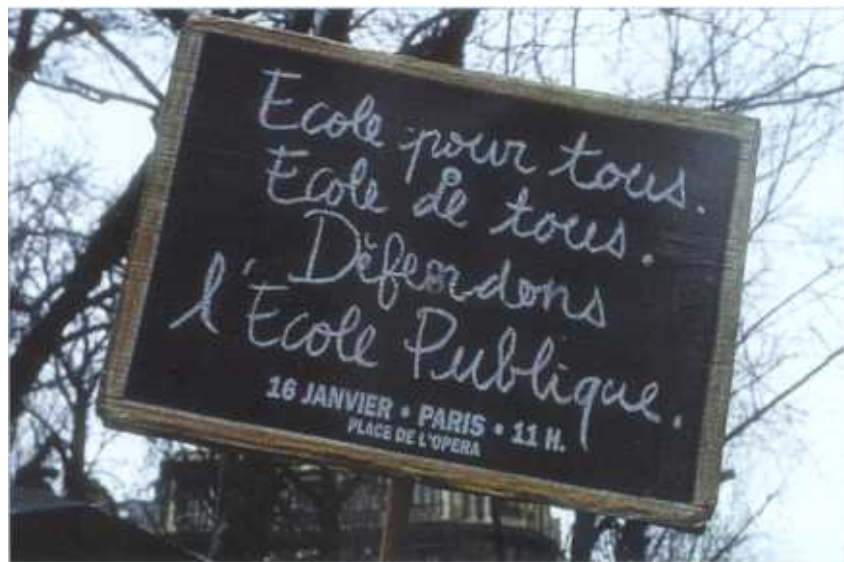 Ecole pour tous.
Ecole de tous.
Défendons
l'Ecole Publique.
16 JANVIER • PARIS • 11 H.
PLACE DE L'OPERA